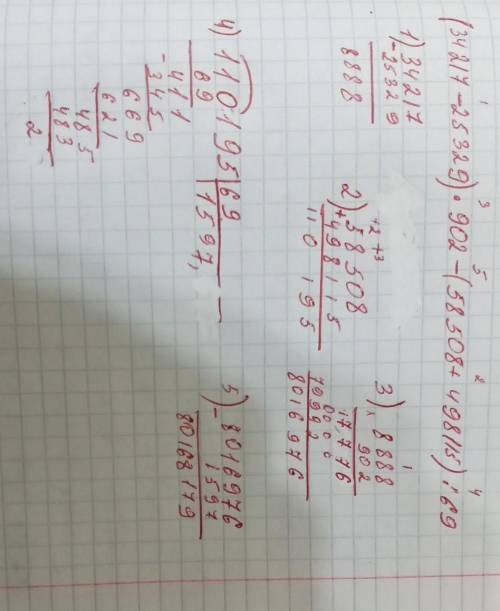 1 3 5 2 4
(34217-25329)·902-(58508+498115):69
1) 34217
-25329
8888
2) 58508
+498115
110195
3) 8888
× 902
17776
0000
79992
8016976
4) 110195|69
69 1597,
411
-345
669
621
485
483
2
5) 8016976
- 1597
80168179